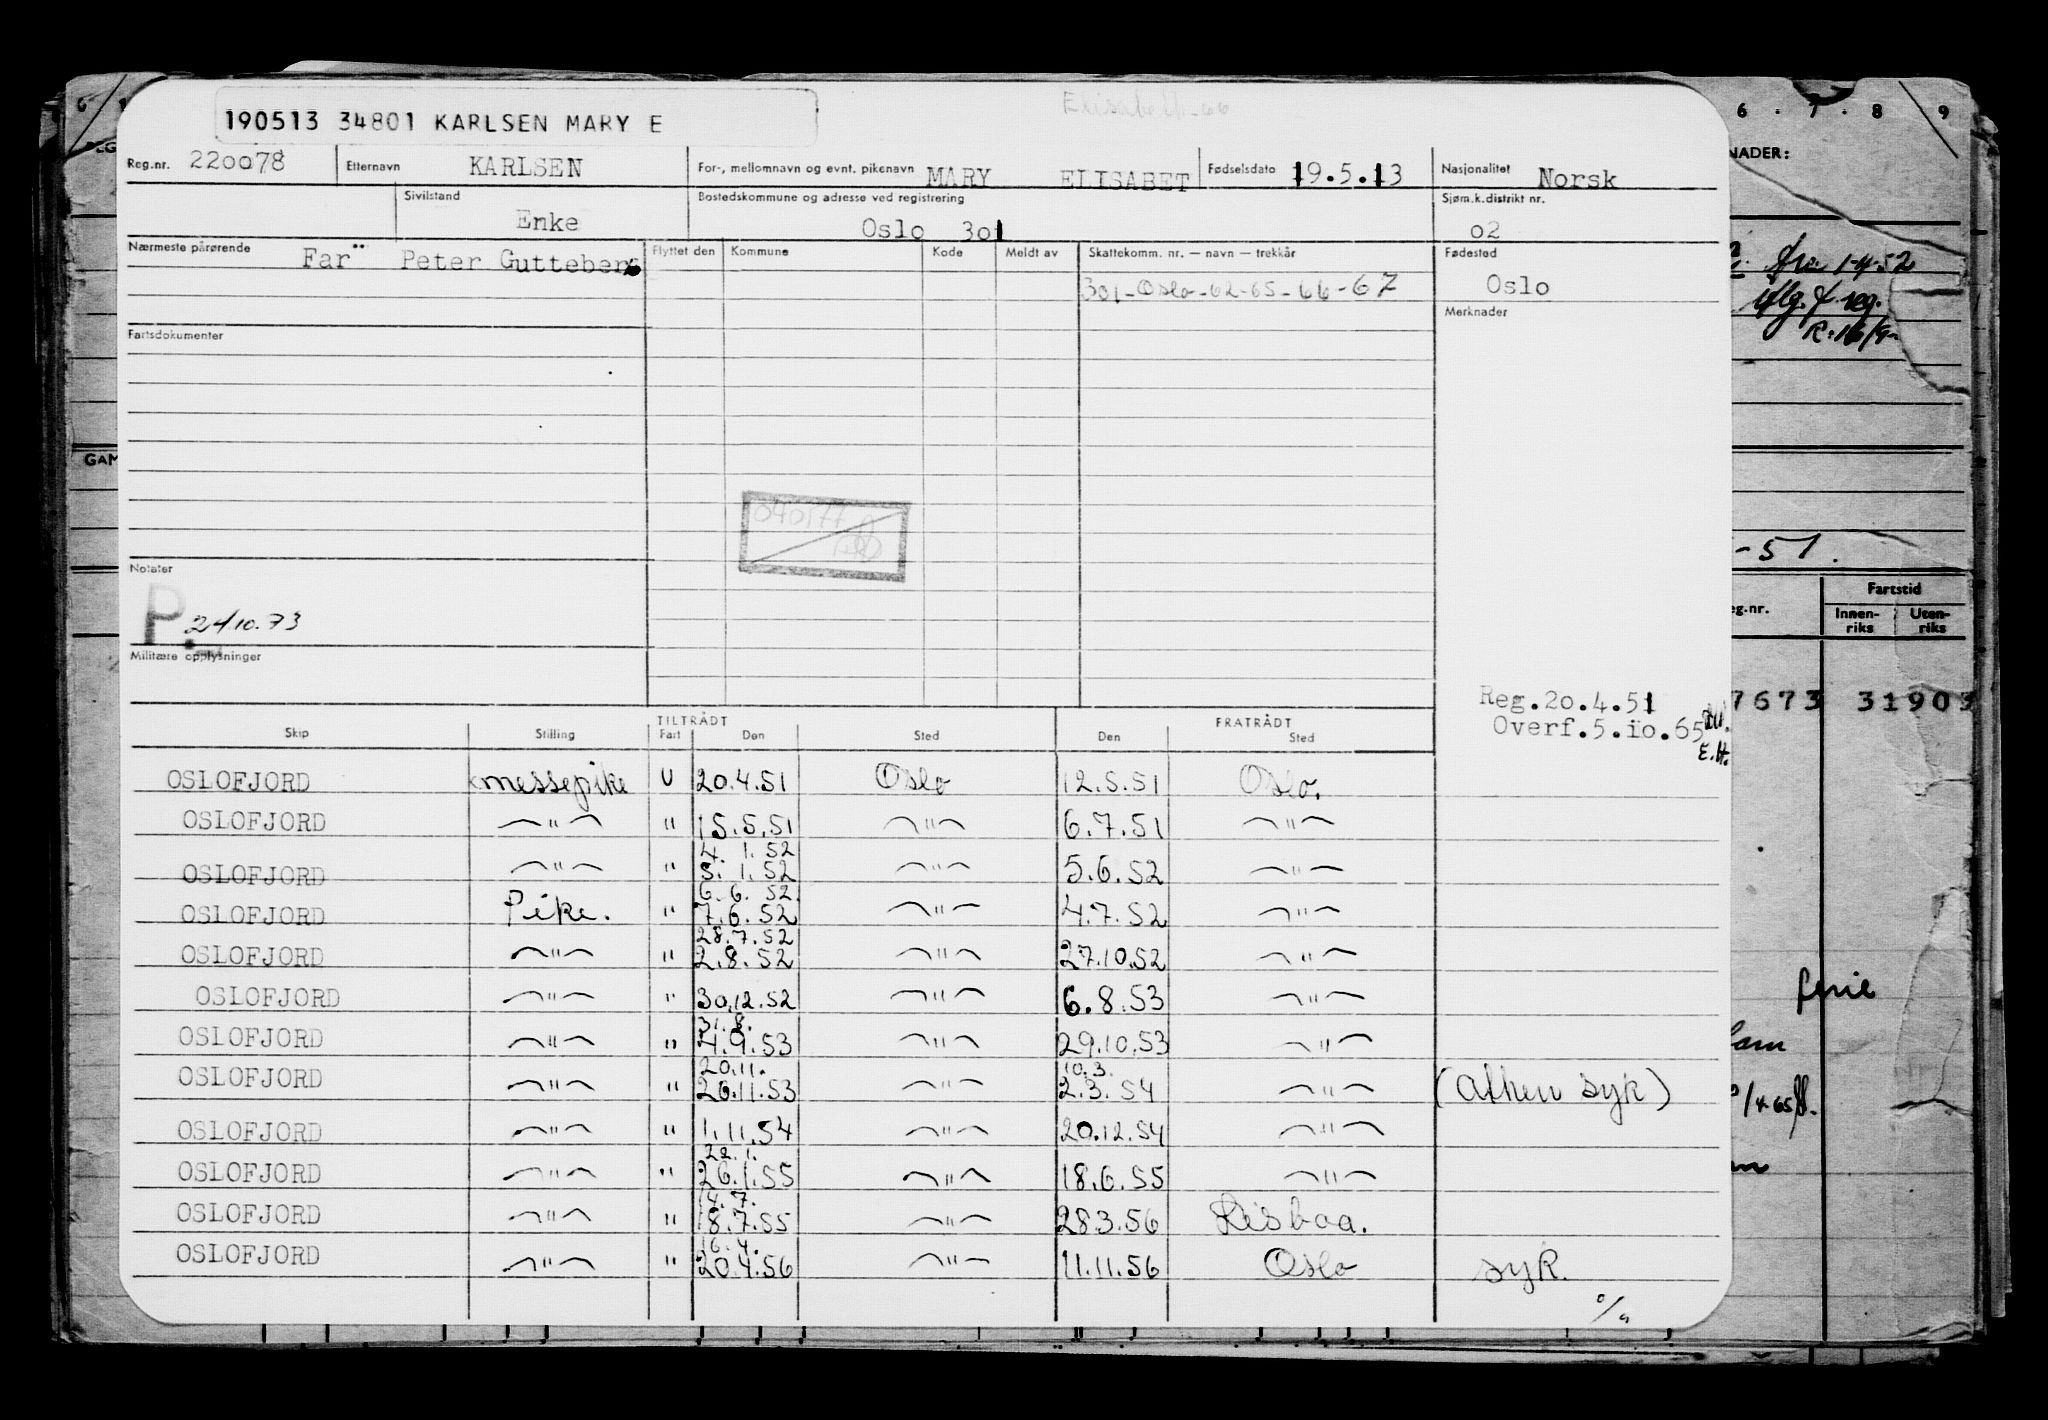 Elisabeth-66
190513 34801 KARLSEN MARY E
Reg.nr. 220078 Etternavn KARLSEN For-, mellomnavn og evnt. pikenavn MARY ELISABET Fødselsdato 19.5.13 Nasjonalitet Norsk
Sivilstand Enke Bostedskommune og adresse ved registrering Oslo 301 Sjøm.k.distrikt nr. 02
Nærmeste pårørende Far Peter Gutteberg Flyttet den Kommune Kode Meldt av Skattekomm. nr. — navn — trekkår Fødested
301-Oslo-62-65-66-67 Oslo
Fartsdokumenter Merknader
040177
Notater
P. 24/10.73
Militære opplysninger
Reg.20.4.51
Overf.5.10.65
E.H.
TILTRÅDT FRATRÅDT
Skip Stilling Fart Den Sted Den Sted
OSLOFJORD messepike U 20.4.51 Oslo 12.5.51 Oslo.
OSLOFJORD —"— " 15.5.51 —"— 6.7.51 —"—
4.1.52
OSLOFJORD —"— " 5.1.52 —"— 5.6.52 —"—
6.6.52
OSLOFJORD Pike. " 7.6.52 —"— 4.7.52 —"—
28.7.52
OSLOFJORD —"— " 2.8.52 —"— 27.10.52 —"—
OSLOFJORD —"— " 30.12.52 —"— 6.8.53 —"—
31.8.
OSLOFJORD —"— " 4.9.53 —"— 29.10.53 —"—
20.11. 10.3.
OSLOFJORD —"— " 26.11.53 —"— 2.3.54 —"— (Athen syk)
OSLOFJORD —"— " 1.11.54 —"— 20.12.54 —"—
22.1.
OSLOFJORD —"— " 26.1.55 —"— 18.6.55 —"—
14.7.
OSLOFJORD —"— " 18.7.55 —"— 28.3.56 Lisboa.
16.4.
OSLOFJORD —"— " 20.4.56 —"— 11.11.56 Oslo syk.
6 . 7 . 8 9
NADER:
fra 1-4-52
R. 16/9-
-51.
eg.nr. Fartstid
Innen-riks Uten-riks
7673 31903
ferie
GAM